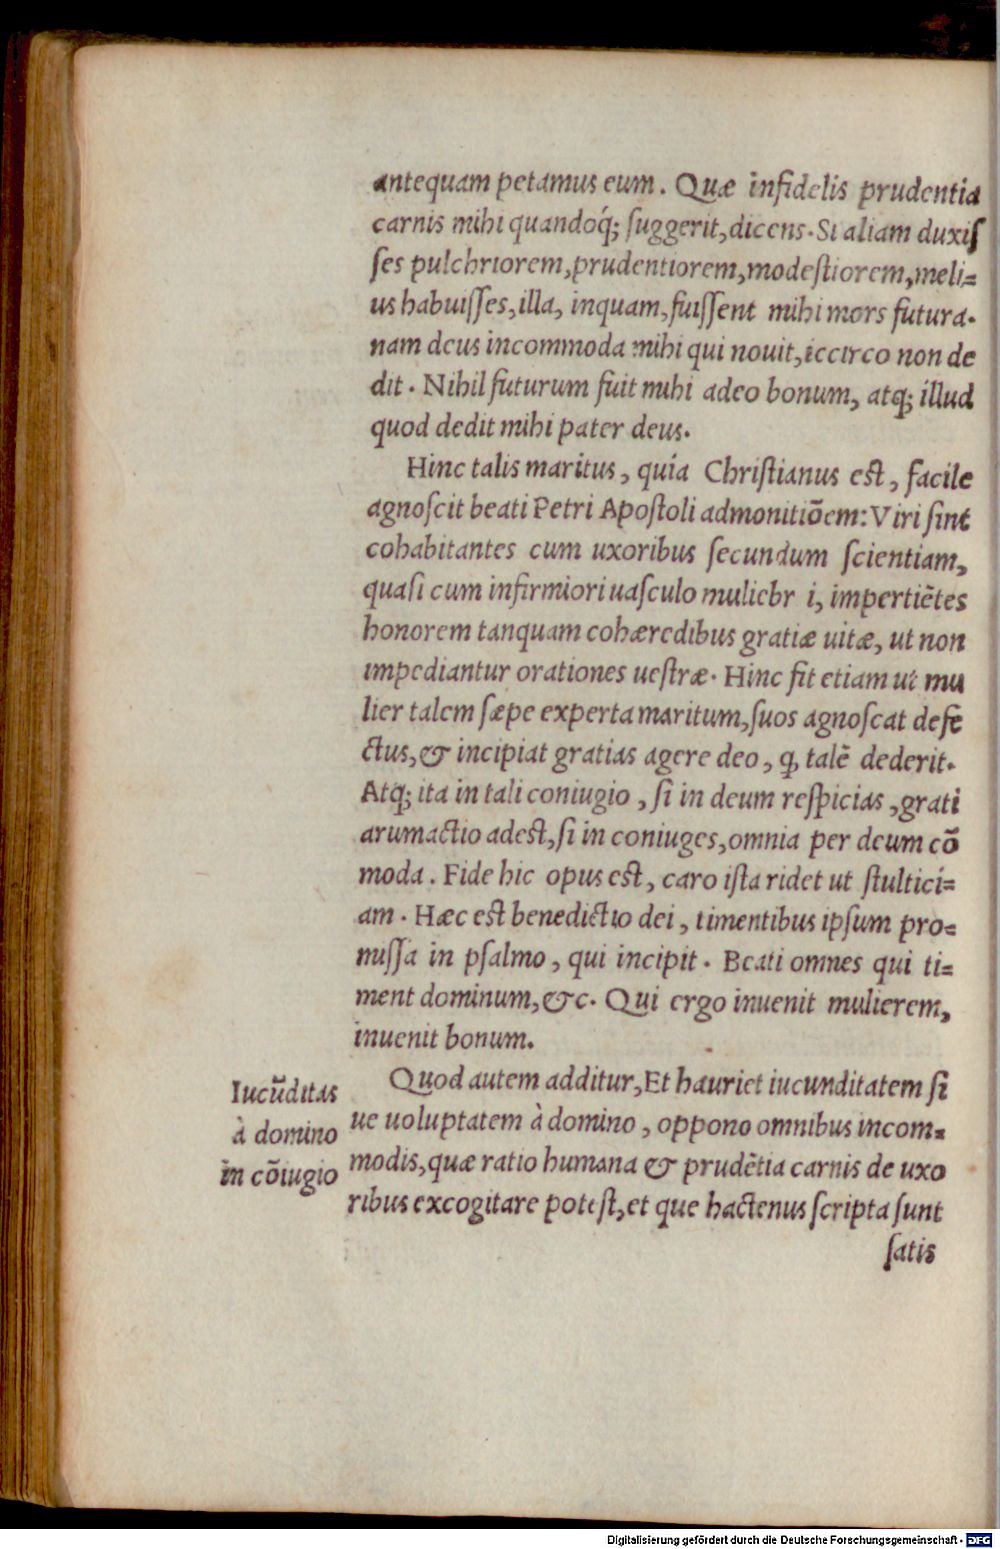 antequam petamus eum. Quæ infidelis prudentia
carnis mihi quandoq́; ſuggerit, dicens. Si aliam duxiſ
ſes pulchriorem, prudentiorem, modeſtiorem, meli=
us habuiſſes, illa, inquam, fuiſſent mihi mors futura.
nam deus incommoda mihi qui nouit, iccirco non de
dit. Nihil futurum fuit mihi adeo bonum, atq; illud
quod dedit mihi pater deus.
Hinc talis maritus, quia Chriſtianus eſt, facile
agnoſcit beati Petri Apoſtoli admonitiōem: Viri ſint
cohabitantes cum uxoribus ſecundum ſcientiam,
quaſi cum infirmiori uaſculo muliebr i, impertiētes
honorem tanquam cohæredibus gratiæ uitæ, ut non
impediantur orationes ueſtræ. Hinc fit etiam ut mu
lier talem ſæpe experta maritum, ſuos agnoſcat defe
ctus, & incipiat gratias agere deo, ꝙ talē dederit.
Atq; ita in tali coniugio, ſi in deum reſpicias, grati
arumactio adeſt, ſi in coniuges, omnia per deum cō
moda. Fide hic opus eſt, caro iſta ridet ut ſtultici=
am. Hæc eſt benedictio dei, timentibus ipſum pro=
miſſa in pſalmo, qui incipit. Beati omnes qui ti=
ment dominum, &c. Qui ergo inuenit mulierem,
inuenit bonum.
Quod autem additur, Et hauriet iucunditatem ſi
ue uoluptatem à domino, oppono omnibus incom=
modis, quæ ratio humana & prudētia carnis de uxo
ribus excogitare poteſt, et que hactenus ſcripta ſunt
ſatis
Iucūditas
à domino
in cōiugio
Digitalisierung gefördert durch die Deutsche Forschungsgemeinschaft - DFG